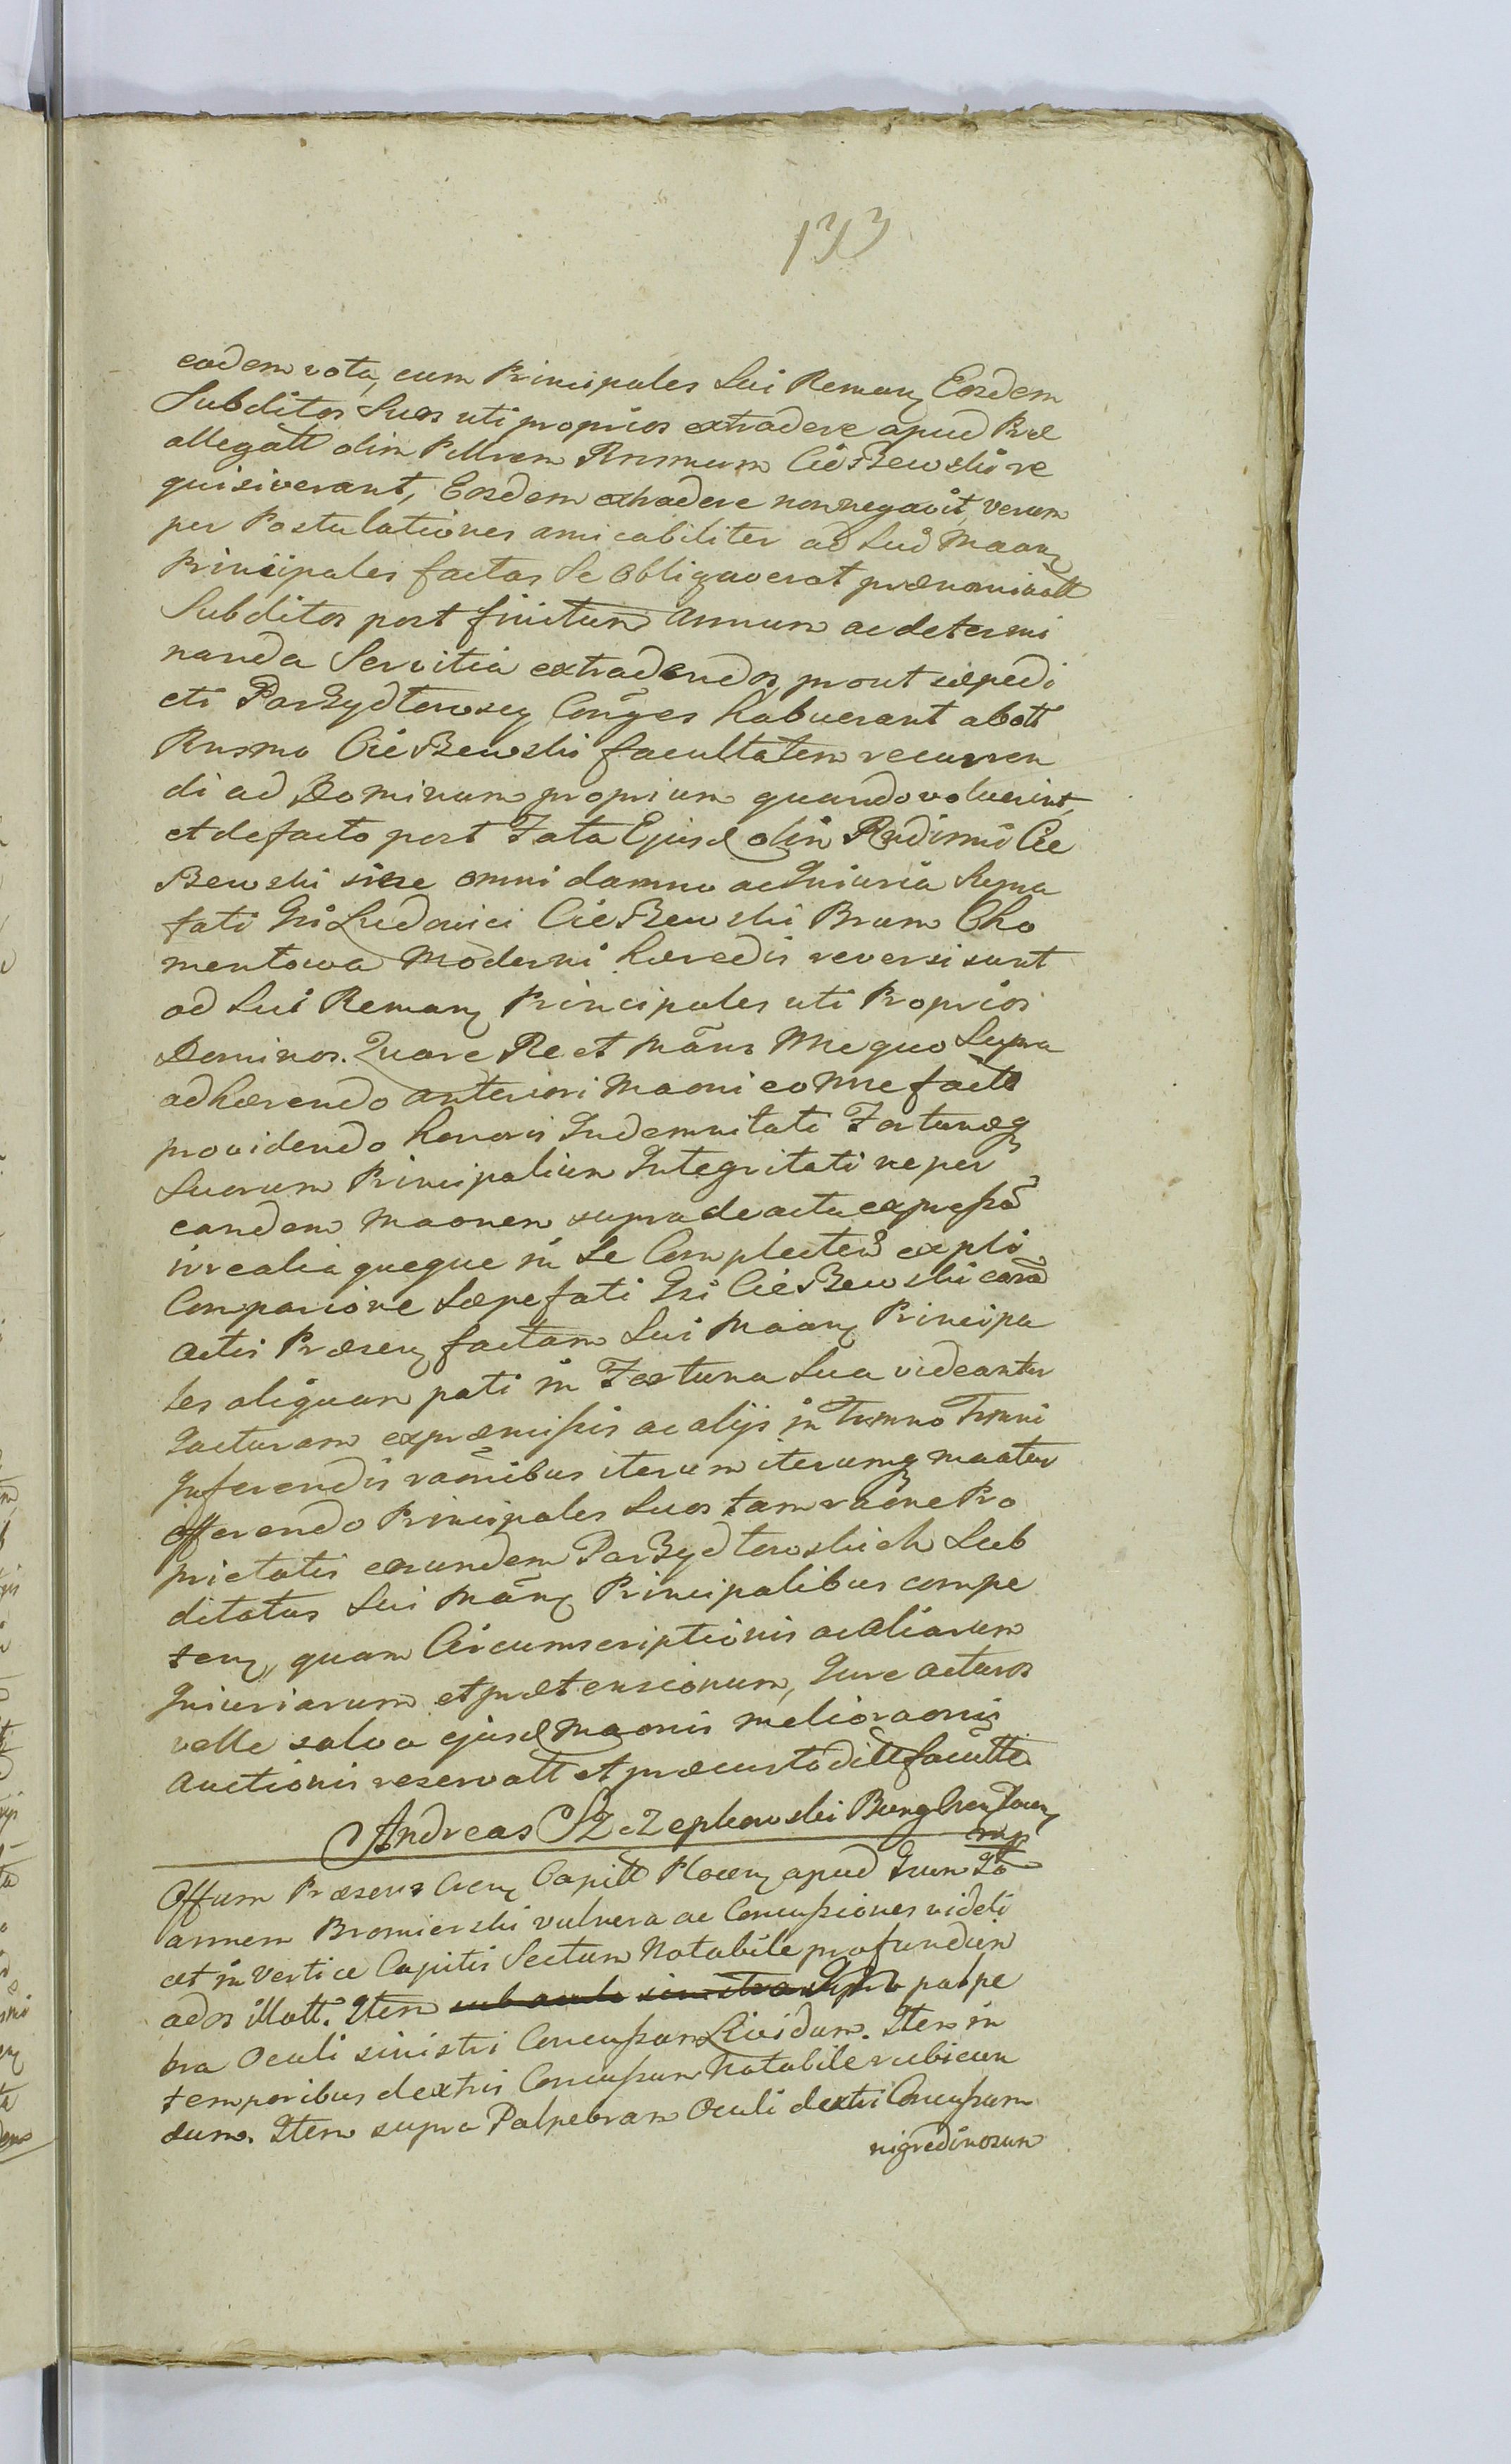 133
eadem vota, cum Principales Sui Remanẽ Eosdem
Subditos Suos uti proprios extradere apud Præ
allegatt olim Pttrem Rnsmum CieSzewski re
quisiverant, Eosdem extradere non negavit, verum
per Postulationes amicabiliter ad Sui Maanẽ
Principales factas Se Obligaverat prænominatt
Subditos post finitum Annum ac determi
nanda Servitia extradendos, prout sæpedi
cti ParZydtowscy Conges habuerant ab ott
Rnsmo CieSzewski facultatem recurren
di ad Dominum proprium quando voluerint,
et defacto post Fata Ejusd olim Rndismi Cie
Szewski sine omni damno ac Iniuria Supra
fati Gsi Ludovici CieSzewski Bnum Cho
mentowa Moderni hæredis reversi sunt
ad Sui Remanẽ Principales uti Proprios
Dominos. Quare Re et Mãns Me quo Supra
adhærendo anteriori Maoni eo Nne factæ
providendo honoris Indemnitati Fortunæq
Suorum Principalium Integritati ne per
eandem Maonem supra de actu expressã
irrealia queque in Se Complecteñ expli
Comparione Sæpefati Gsi CieSzewski corã
Actis Præsenẽ factam Sui Maanẽ Principa
les aliquam pati in Fortuna Sua videantur
Iacturam ex præmissis ac alijs in Trmno Trmni
Inferendis raõnibus iterum iterumq maatur
Offerendo Principales Suos tam raõne Pro
prietatis eorundem ParZydtowskich Sub
ditatus Sui Mãnẽ Principalibus compe
tenẽ, quam Circumscriptionis ac aliarum
Iniuriarum et prætensionum, Iure acturos
velle salva ejusd Maonis melioraonis
Auctionis reservatt et præcustoditt facultte
Andreas SzcZepkowski Burgben
mp
Offum Præsens Crenẽ Capitt Plocenẽ apud Gsum Jo
annem Bromierski vulnera ac Concussiones vidit
et in Vertice Capitis Sectum Notabile profundum
ad os illatt. Item sub oculo sinistro palpe
bra Oculi sinistri Concussum Lividum. Item in
temporibus dextris Concussum Notabile rubicun
dum. Item supra Palpebram Oculi dextri Concussum
nigredinosum